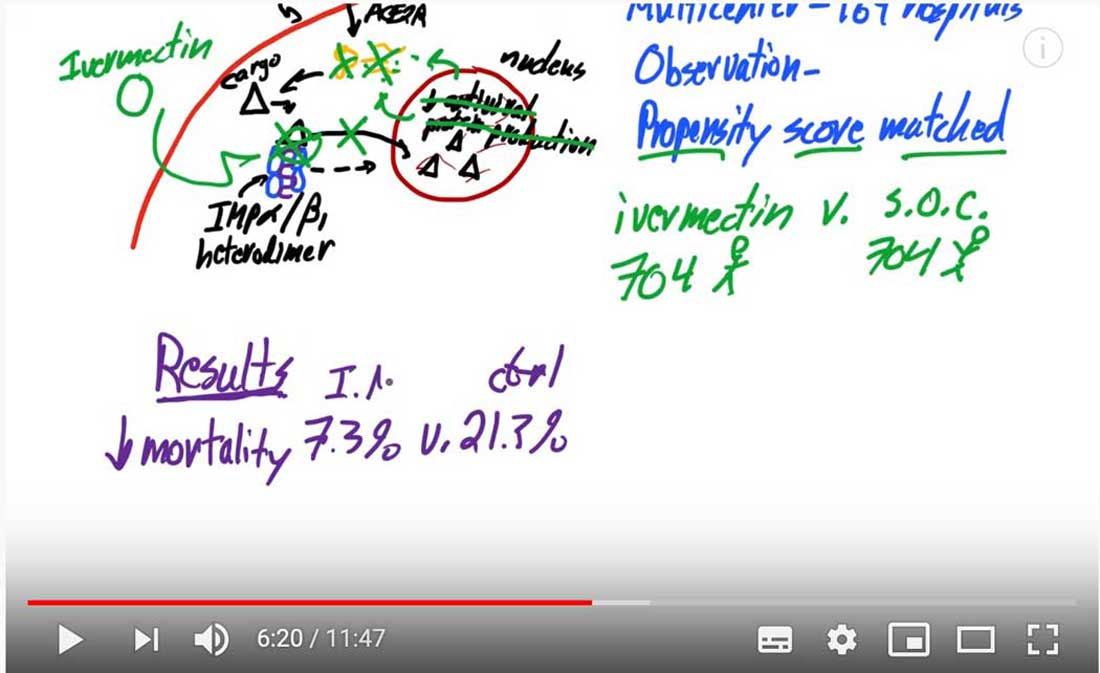 ACE2R
Ivermectin
cargo
nucleus
IMPα/β1
heterodimer
Multicenter - 169 hospitals
Observation-
Propensity score matched
ivermectin v. S.O.C.
704 704
Results I. ctrl
↓ mortality 7.3% v. 21.3%
6:20 / 11:47